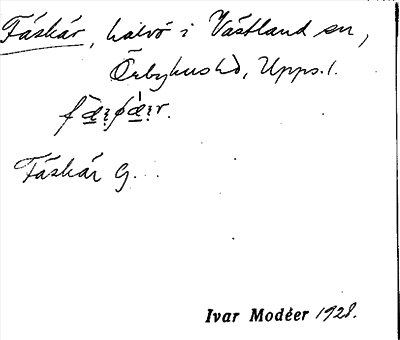 Fåskär, halvö i Västland sn,
Örbyhus hd, Upps. l.
Fåskär G.
Ivar Modéer 1928.